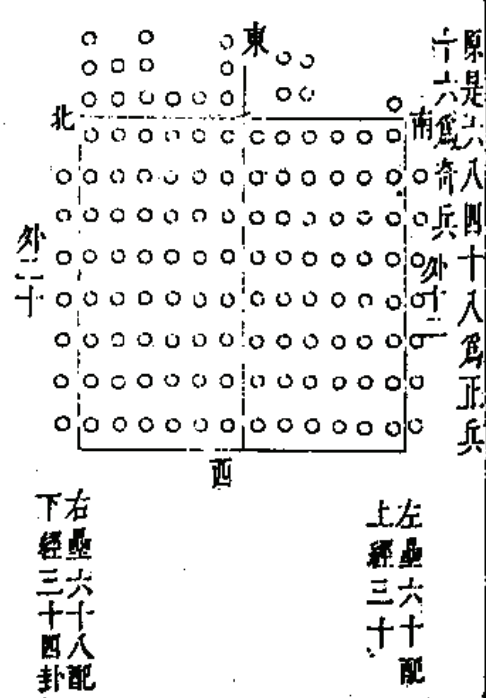 原是六八四十八爲正兵
十六爲奇兵
外十二
東
南
北
外二十
西
左壘六十配
上經三十
右壘六十八配
下經三十四卦